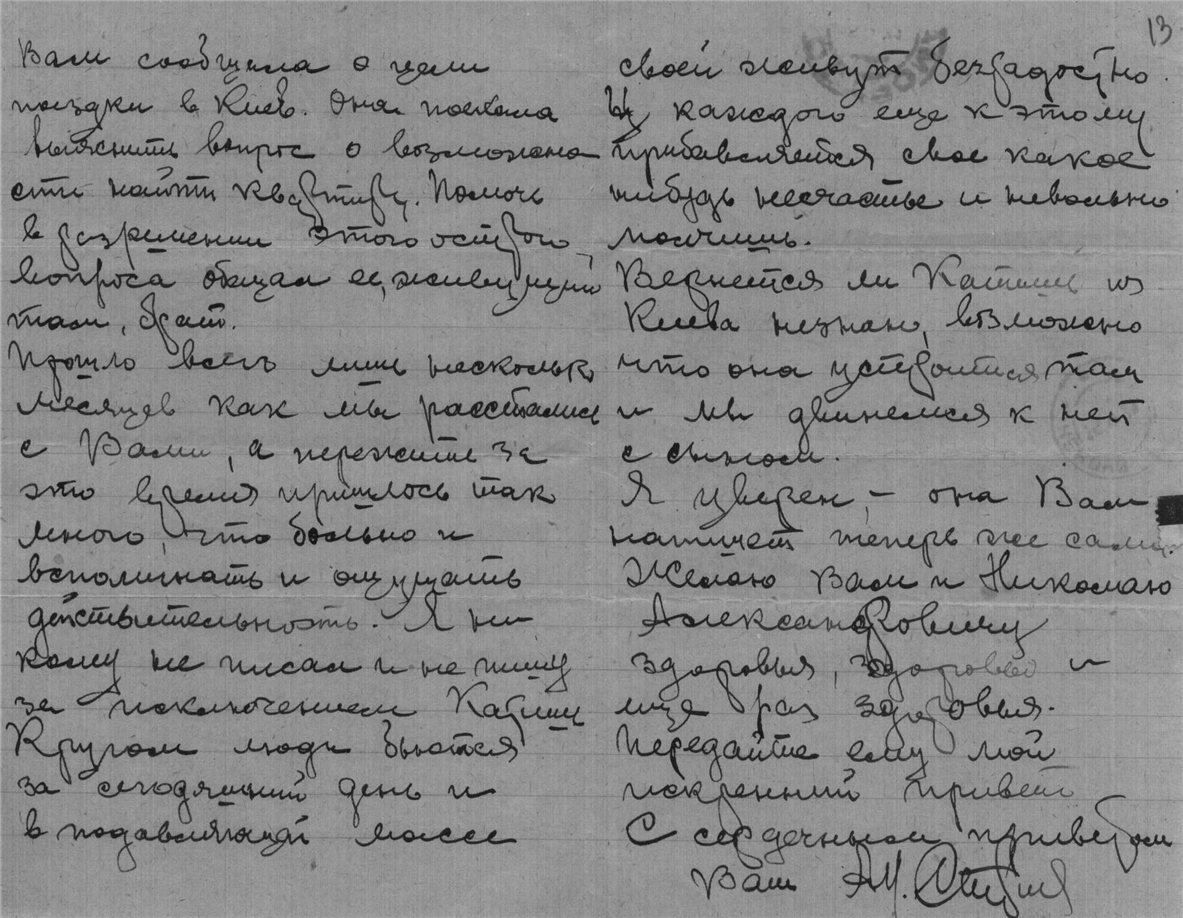 Вам сообщила о цели
поездки в Киев. Она поехала
выяснить вопрос о возможно
сти найти квартиру. Помочь
в разрешении этого острого
вопроса обещал ей, живущий
там, брат.
Прошло всего лишь несколько
месяцев как мы расстались
с Вами, а пережить за
это время пришлось так
много, что больно и
вспоминать и ощущать
действительность. Я ни
кому не писал и не пишу
за исключением Катюши
Кругом люди бьются
за сегодняшний день и
в подавляющей массе
13
своей живут безрадостно.
У каждого еще к этому
прибавляется свое какое
нибудь несчастье и невольно
молчишь.
Вернется ли Катюша из
Киева незнаю, возможно
что она устроится там
и мы двинемся к ней
с сыном.
Я уверен, – она Вам
напишет теперь же сама.
Желаю Вам и Николаю
Александровичу
здоровья, здоровья и
еще раз здоровья.
Передайте ему мой
искренний привет
С сердечным приветом
Ваш